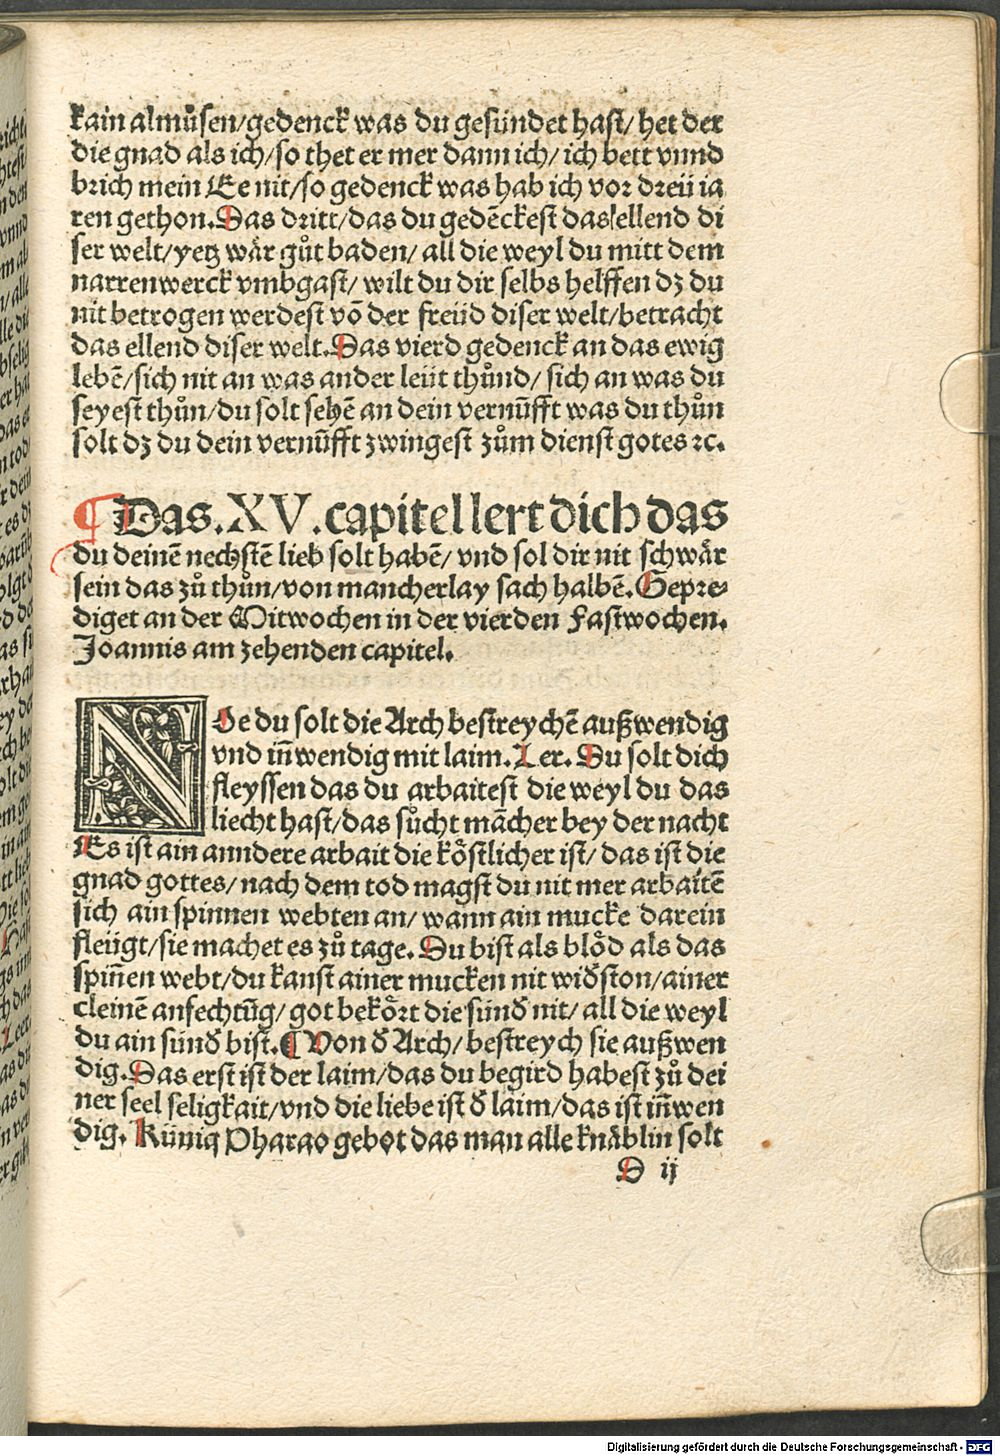 kain almůsen/gedenck was du gesündet hast/ het der
die gnad als ich/so thet er mer dann ich/ ich bett vnnd
brich mein Ee nit/so gedenck was hab ich vor dreii ia
ren gethon. Das dritt/das du gedēckest das ellend di
ser welt/yetz wår gůt baden/ all die weyl du mitt dem
narrenwerck vmbgast/ wilt du dir selbs helffen dz du
nit betrogen werdest vō der freiid diser welt/betracht
das ellend diser welt. Das vierd gedenck an das ewig
lebē/sich nit an was ander leüt thůnd/ sich an was du
seyest thůn/du solt sehē an dein vernūfft was du thůn
solt dz du dein vernūfft zwingest zům dienst gotes ⁊c.
¶ Das .XV. capitel lert dich das
du deinē nechstē lieb solt habē/ vnd sol dir nit schwår
sein das zů thůn/von mancherlay sach halbē. Gepre⸗
diget an der Mitwochen in der vierden Fastwochen.
Joannis am zehenden capitel.
NOe du solt die Arch bestreychē außwendig
vnd iñwendig mit laim. Ler. Du solt dich
fleyssen das du arbaitest die weyl du das
liecht hast/das sůcht mācher bey der nacht
Es ist ain anndere arbait die kôstlicher ist/ das ist die
gnad gottes/nach dem tod magst du nit mer arbaitē
sich ain spinnen webten an/ wann ain mucke darein
fleügt/sie machet es zů tage. Du bist als blôd als das
spiñen webt/du kanst ainer mucken nit widston/ainer
cleinē anfechtūg/got bekôrt die sünd nit/ all die weyl
du ain sünd bist. ¶ Von d Arch/bestreych sie außwen
dig. Das erst ist der laim/das du begird habest zů dei
ner seel seligkait/vnd die liebe ist d laim/das ist iñwen
dig. Künig Pharao gebot das man alle knåblin solt
D ij
Digitalisierung gefördert durch die Deutsche Forschungsgemeinschaft - DFG